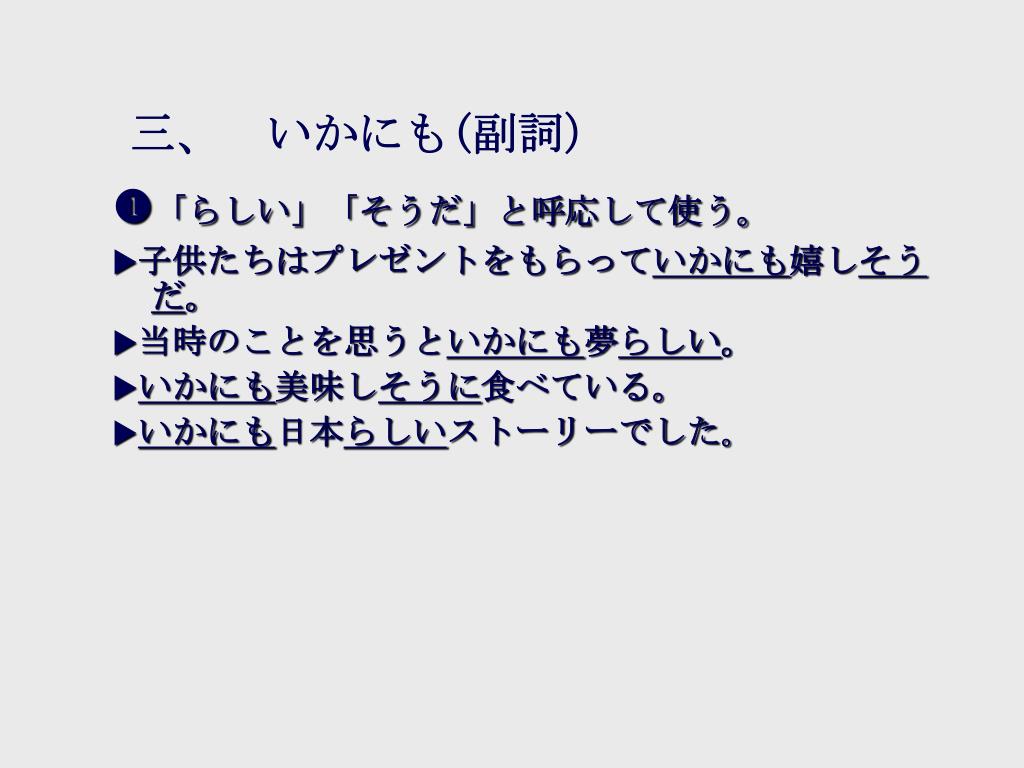 三、　いかにも(副詞)
❶「らしい」「そうだ」と呼応して使う。
▶子供たちはプレゼントをもらっていかにも嬉しそう
だ。
▶当時のことを思うといかにも夢らしい。
▶いかにも美味しそうに食べている。
▶いかにも日本らしいストーリーでした。